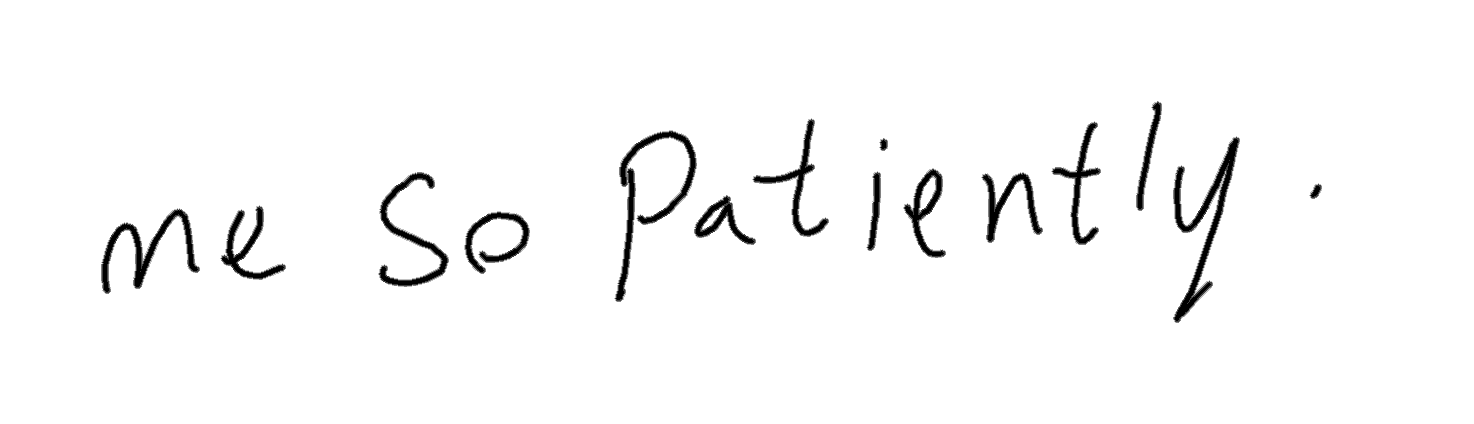 me so patiently.